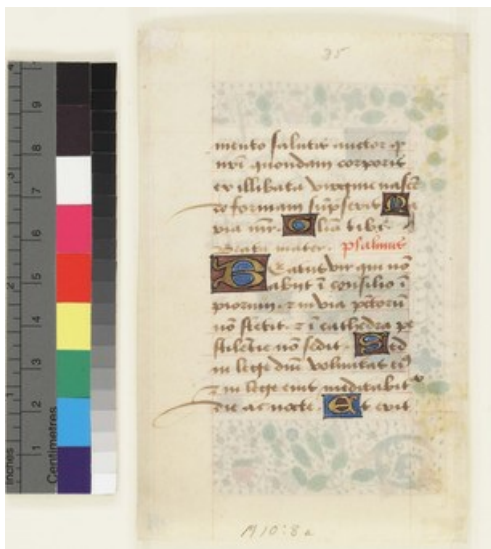 35
mento salutis auctor qͥ
nr̄i quondam corporis
ex illibata virgine nascē
do formam sūpseris Ma
ria mr̄. Glīa tibi
Beata mater. psalmus
Beatus vir qui nō
abiit ī consilio ī
piorum. ⁊ in via pctorū
nō stetit. ⁊ ī cathedra pe
stilentie nō sedit. Sed
in lege dn̄i voluntas eiꝰ
⁊ in lege eius meditabitᷣ
die ac nocte. Et erit
M10:8a
Inches
1
2
3
Centimetres
1
2
3
4
5
6
7
8
9